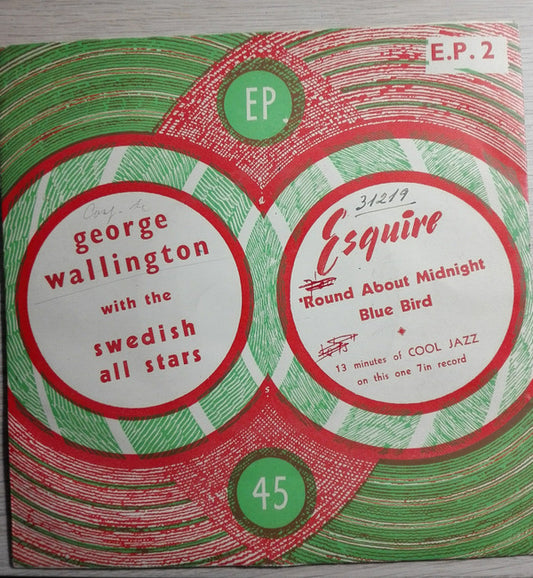 E.P. 2
EP.
george
wallington
with the
swedish
all stars
31219
Esquire
'Round About Midnight
Blue Bird
13 minutes of COOL JAZZ
on this one 7in record
45